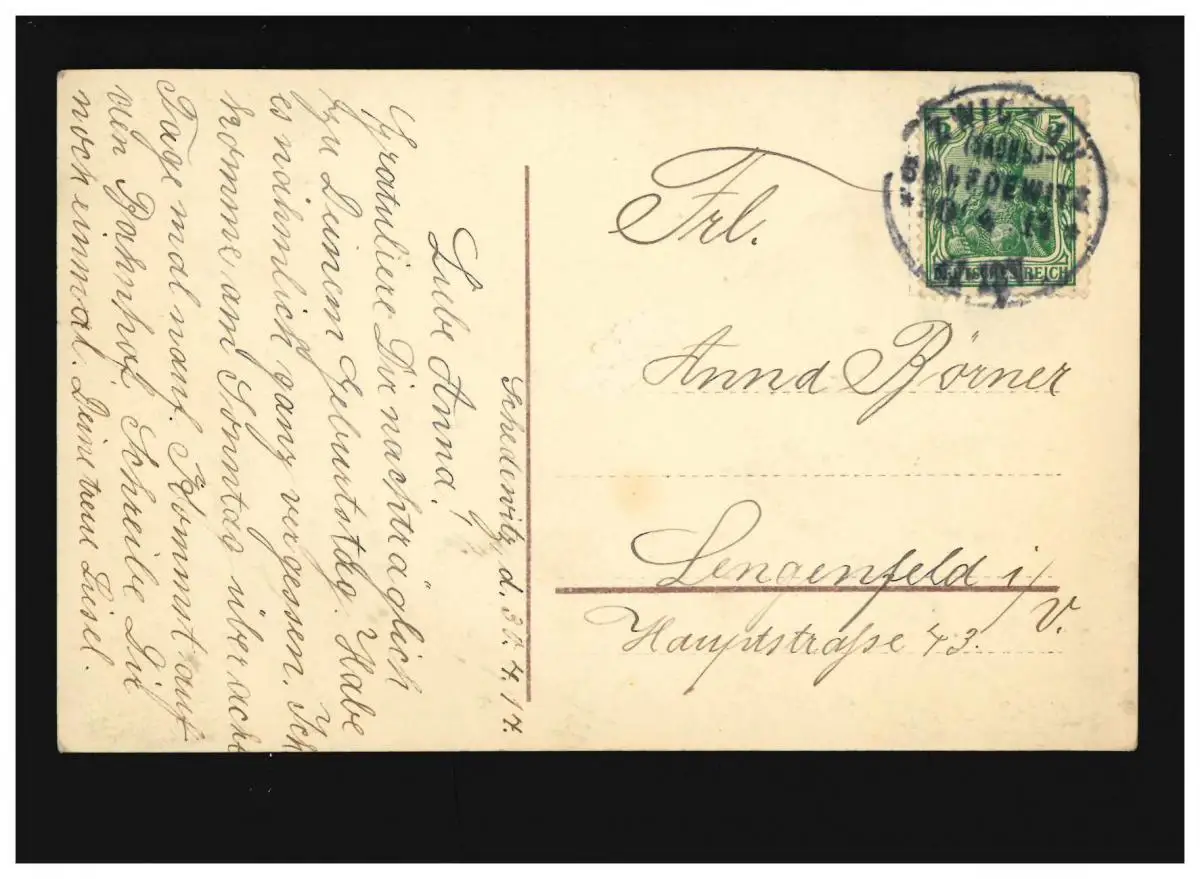 Schedewitz, d. 30. 4. 14.
Liebe Anna!
Gratuliere Dir nachträglich
zu Deinem Geburtstag. Habe
es nähmlich ganz vergessen. Ich
komme am Sonntag über acht
Tage mal nauf. Kommst auf
den Bahnhof. Schreibe Du
noch einmal. Deine treue Liesel.
Frl.
Anna Börner
Lengenfeld i/
V.
Hauptstraße 43.
ZWICKAU
(SACHS.)
SCHEDEWITZ
30 4 14
5 5
DEUTSCHES REICH